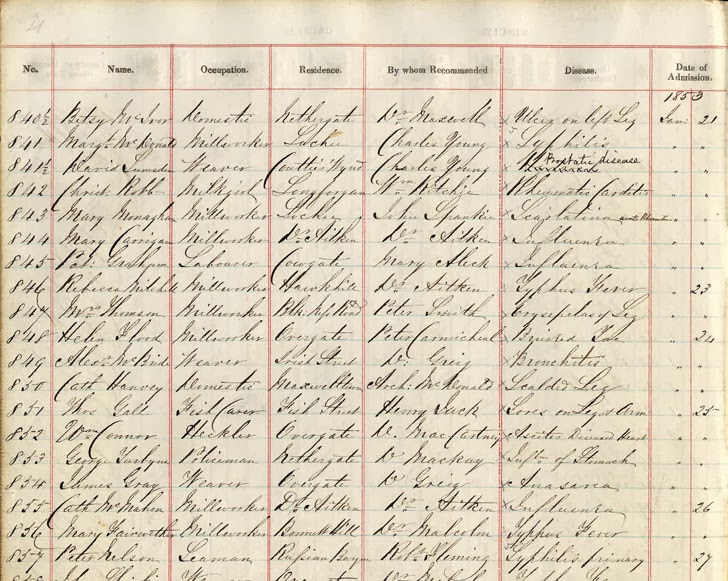 21
No. Name. Occupation. Residence. By whom Recommended Disease. Date of Admission.
1853
840½ Betsy McIvor Domestic Nethergate Dr Maxwell × Ulcer on left Leg Jan: 21
841 Margt McDonald Millworker Lochee Charles Young Syphilis " "
841½ David Lumsden Weaver Couttie's Wynd Charles Young × Prostatic disease " "
842 Christ. Robb Milkgirl Longforgan Wm Ritchie × Rheumatic Carditis " "
843 Mary Monaghan Millworker Lochee John Shankie × Scarlatina " "
844 Mary Carrigan Millworker Dr Aitken Dr Aitken × Influenza " "
845 Pat: Graham Labourer Cowgate Mary Aleck × Influenza " "
846 Rebecca Mitchell Millworker Hawkhill Dr Aitken × Typhus Fever " 23
847 Mrs Thomson Millworker Peter Smith × Erysipelas of Leg " "
848 Helen Flood Millworker Overgate Peter Carmichael × Bruised Toe " 24
849 Alexr McBride Weaver Irish Street Dr Greig × Bronchitis " "
850 Cath Hanvey Domestic Maxwelltown Arch: McDonald × Scalded Leg " "
851 Thos Galt Fish Street Henry Jack × Sores on Leg & Arm " 25
852 Wm Connor Heckler Overgate Dr MacCartney × Ascites Diseased Heart " "
853 George Policeman Nethergate Dr Mackay × of Stomach " "
854 James Gray Weaver Overgate Dr Greig × Anasarca " "
855 Cath McMahon Millworker Dr Aitken Dr Aitken × Influenza " 26
856 Mary Fairweather Millworker Bonnet Hill Dr Malcolm × Typhus Fever " "
857 Peter Nelson Seaman Russian Robt Fleming × Syphilis primary " 27